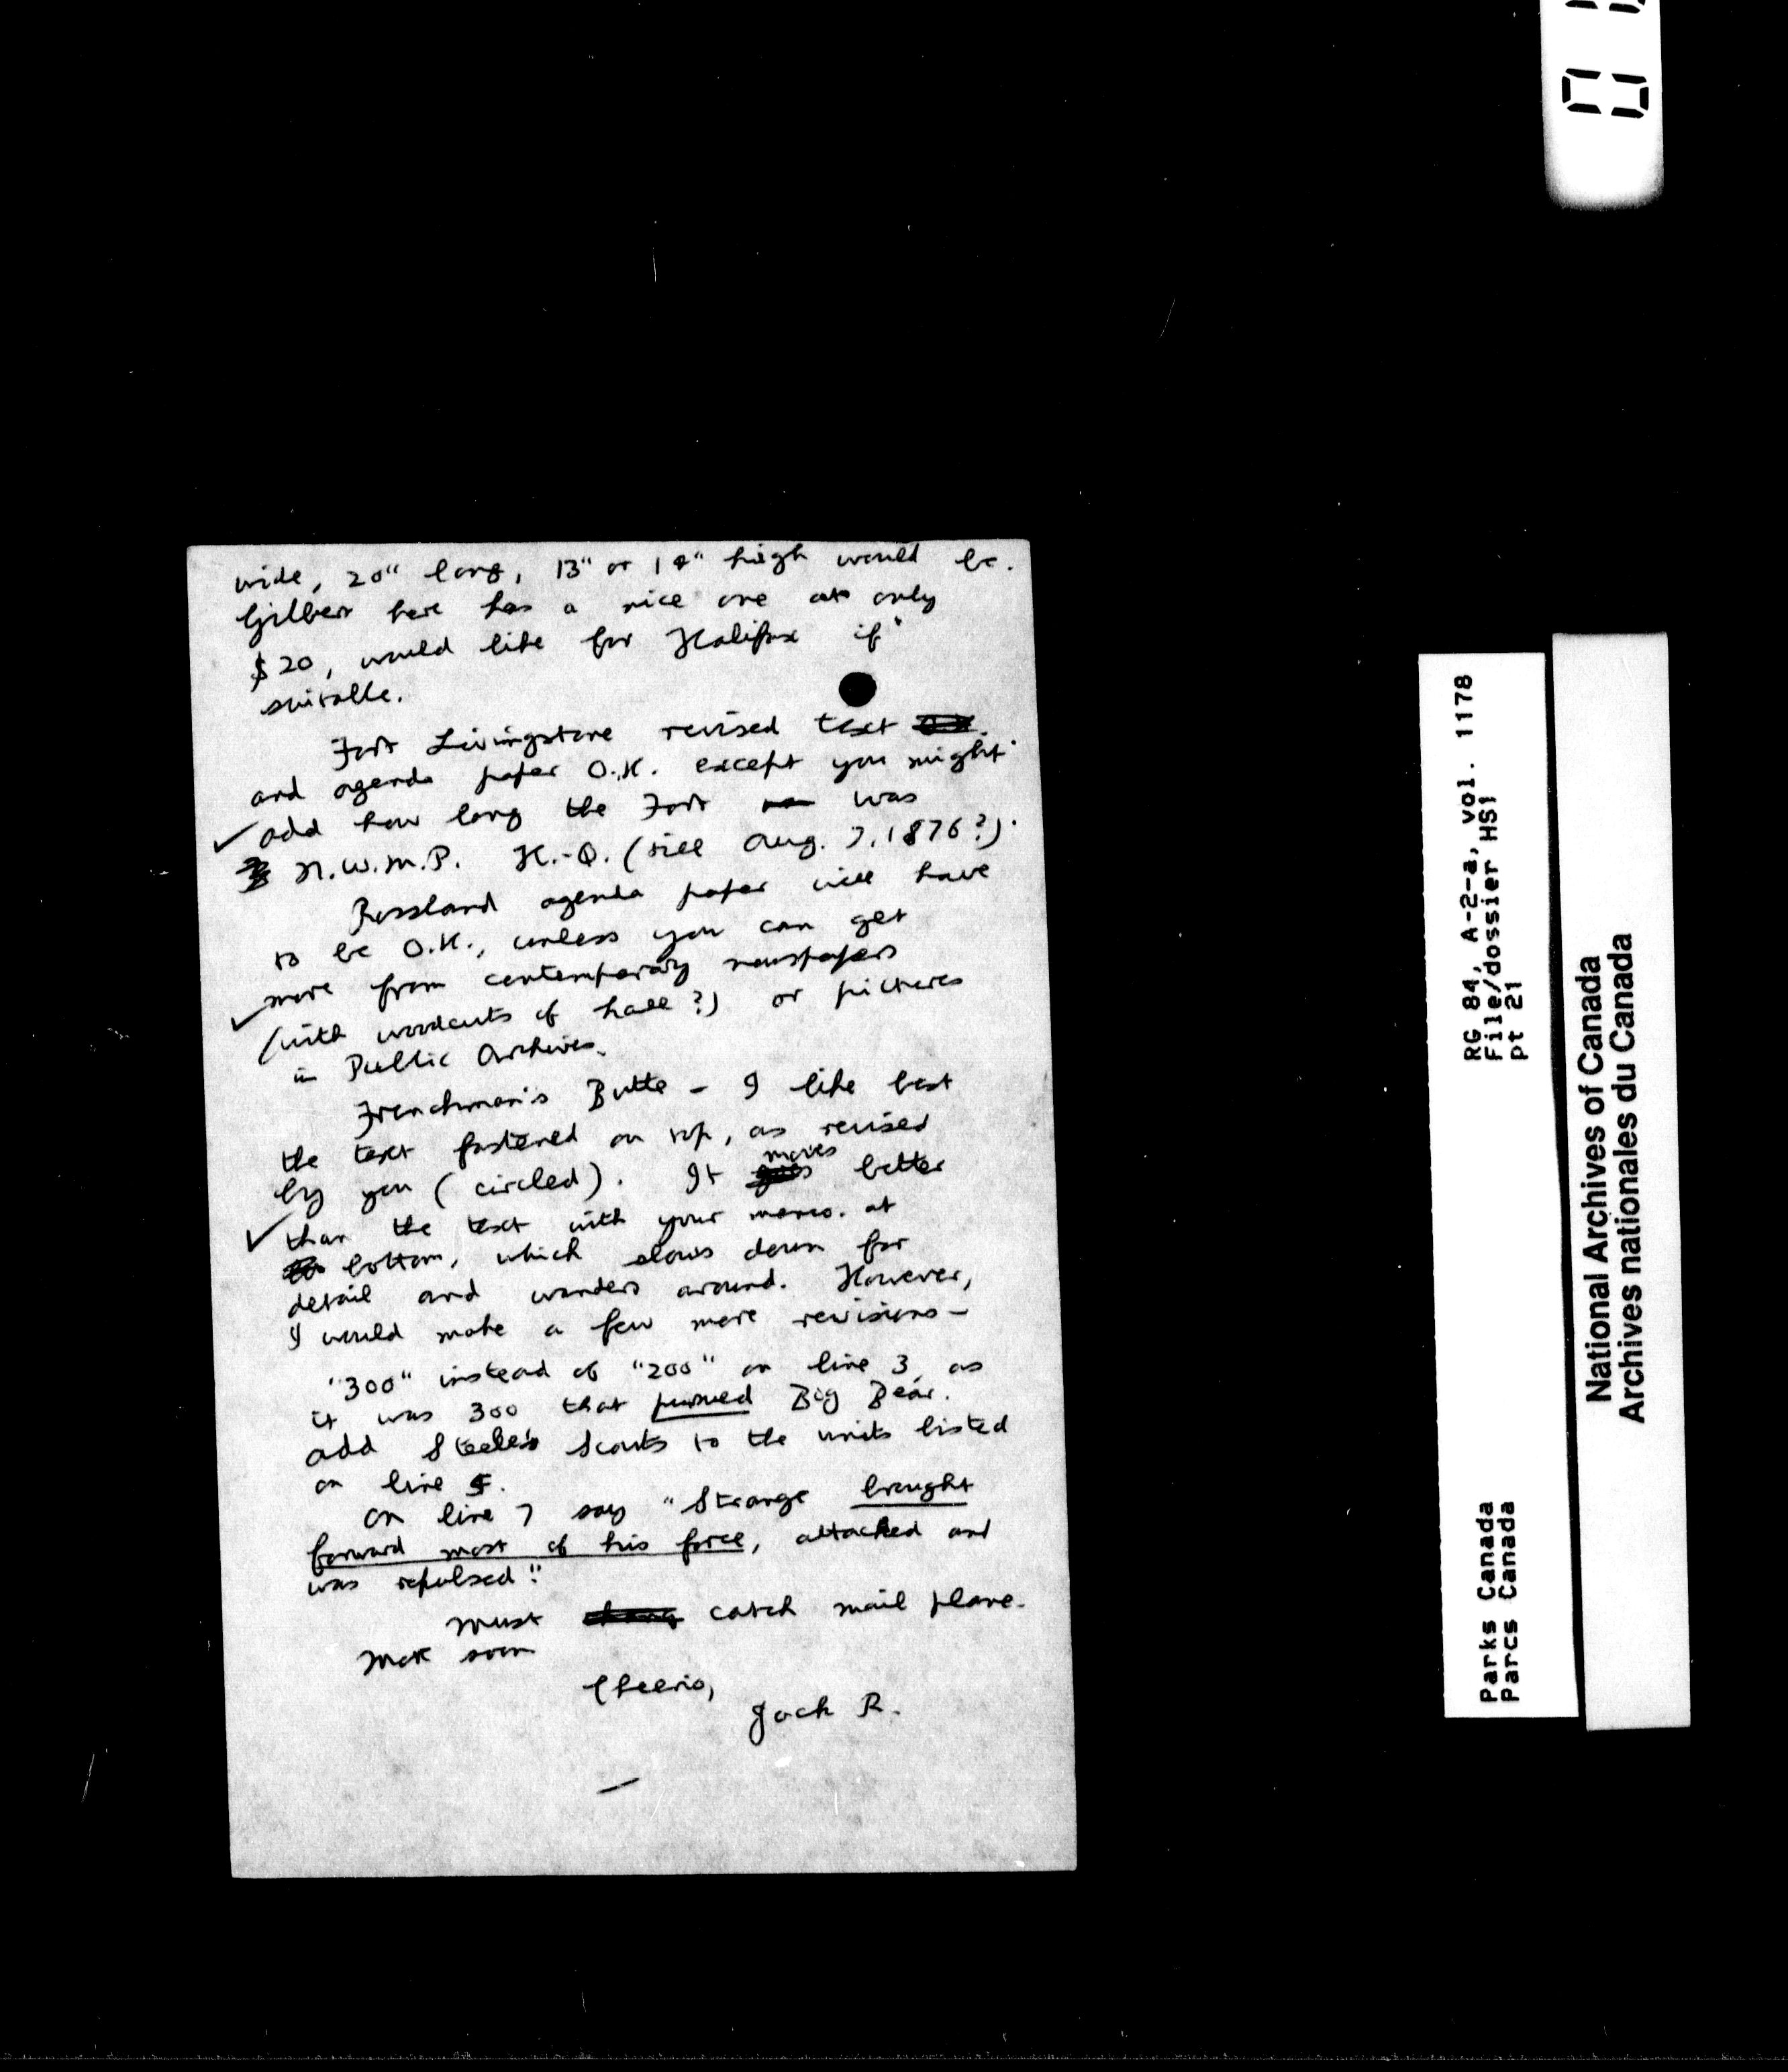 wide, 20" long, 13" or 14" high would be.
Gilbert here has a nice one at only
$20, would like for Halifax if
suitable.
Fort Livingstone revised text
and agenda paper O.K. except you might
✓ add how long the Fort was
N.W.M.P. H.-Q. (till Aug. 7, 1876?).
Rossland agenda paper will have
to be O.K., unless you can get
more from contemporary newspapers
✓ (with woodcuts of hall?) or pictures
in Public Archives.
Frenchman's Butte - I like best
the text fastened on top, as revised
by you (circled). It moves better
✓ than the text with your memo. at
bottom, which slows down for
detail and wanders around. However,
I would make a few more revisions -
"300" instead of "200" on line 3, as
it was 300 that pursued Big Bear.
add Steele's Scouts to the units listed
on line 5.
On line 7 say "Strange brought
forward most of his force, attacked and
was repulsed".
Must catch mail plane.
More soon
Cheerio,
Jack R.
RG 84, A-2-a, vol. 1178
File/dossier HS1
pt 21
Parks Canada
Parcs Canada
National Archives of Canada
Archives nationales du Canada